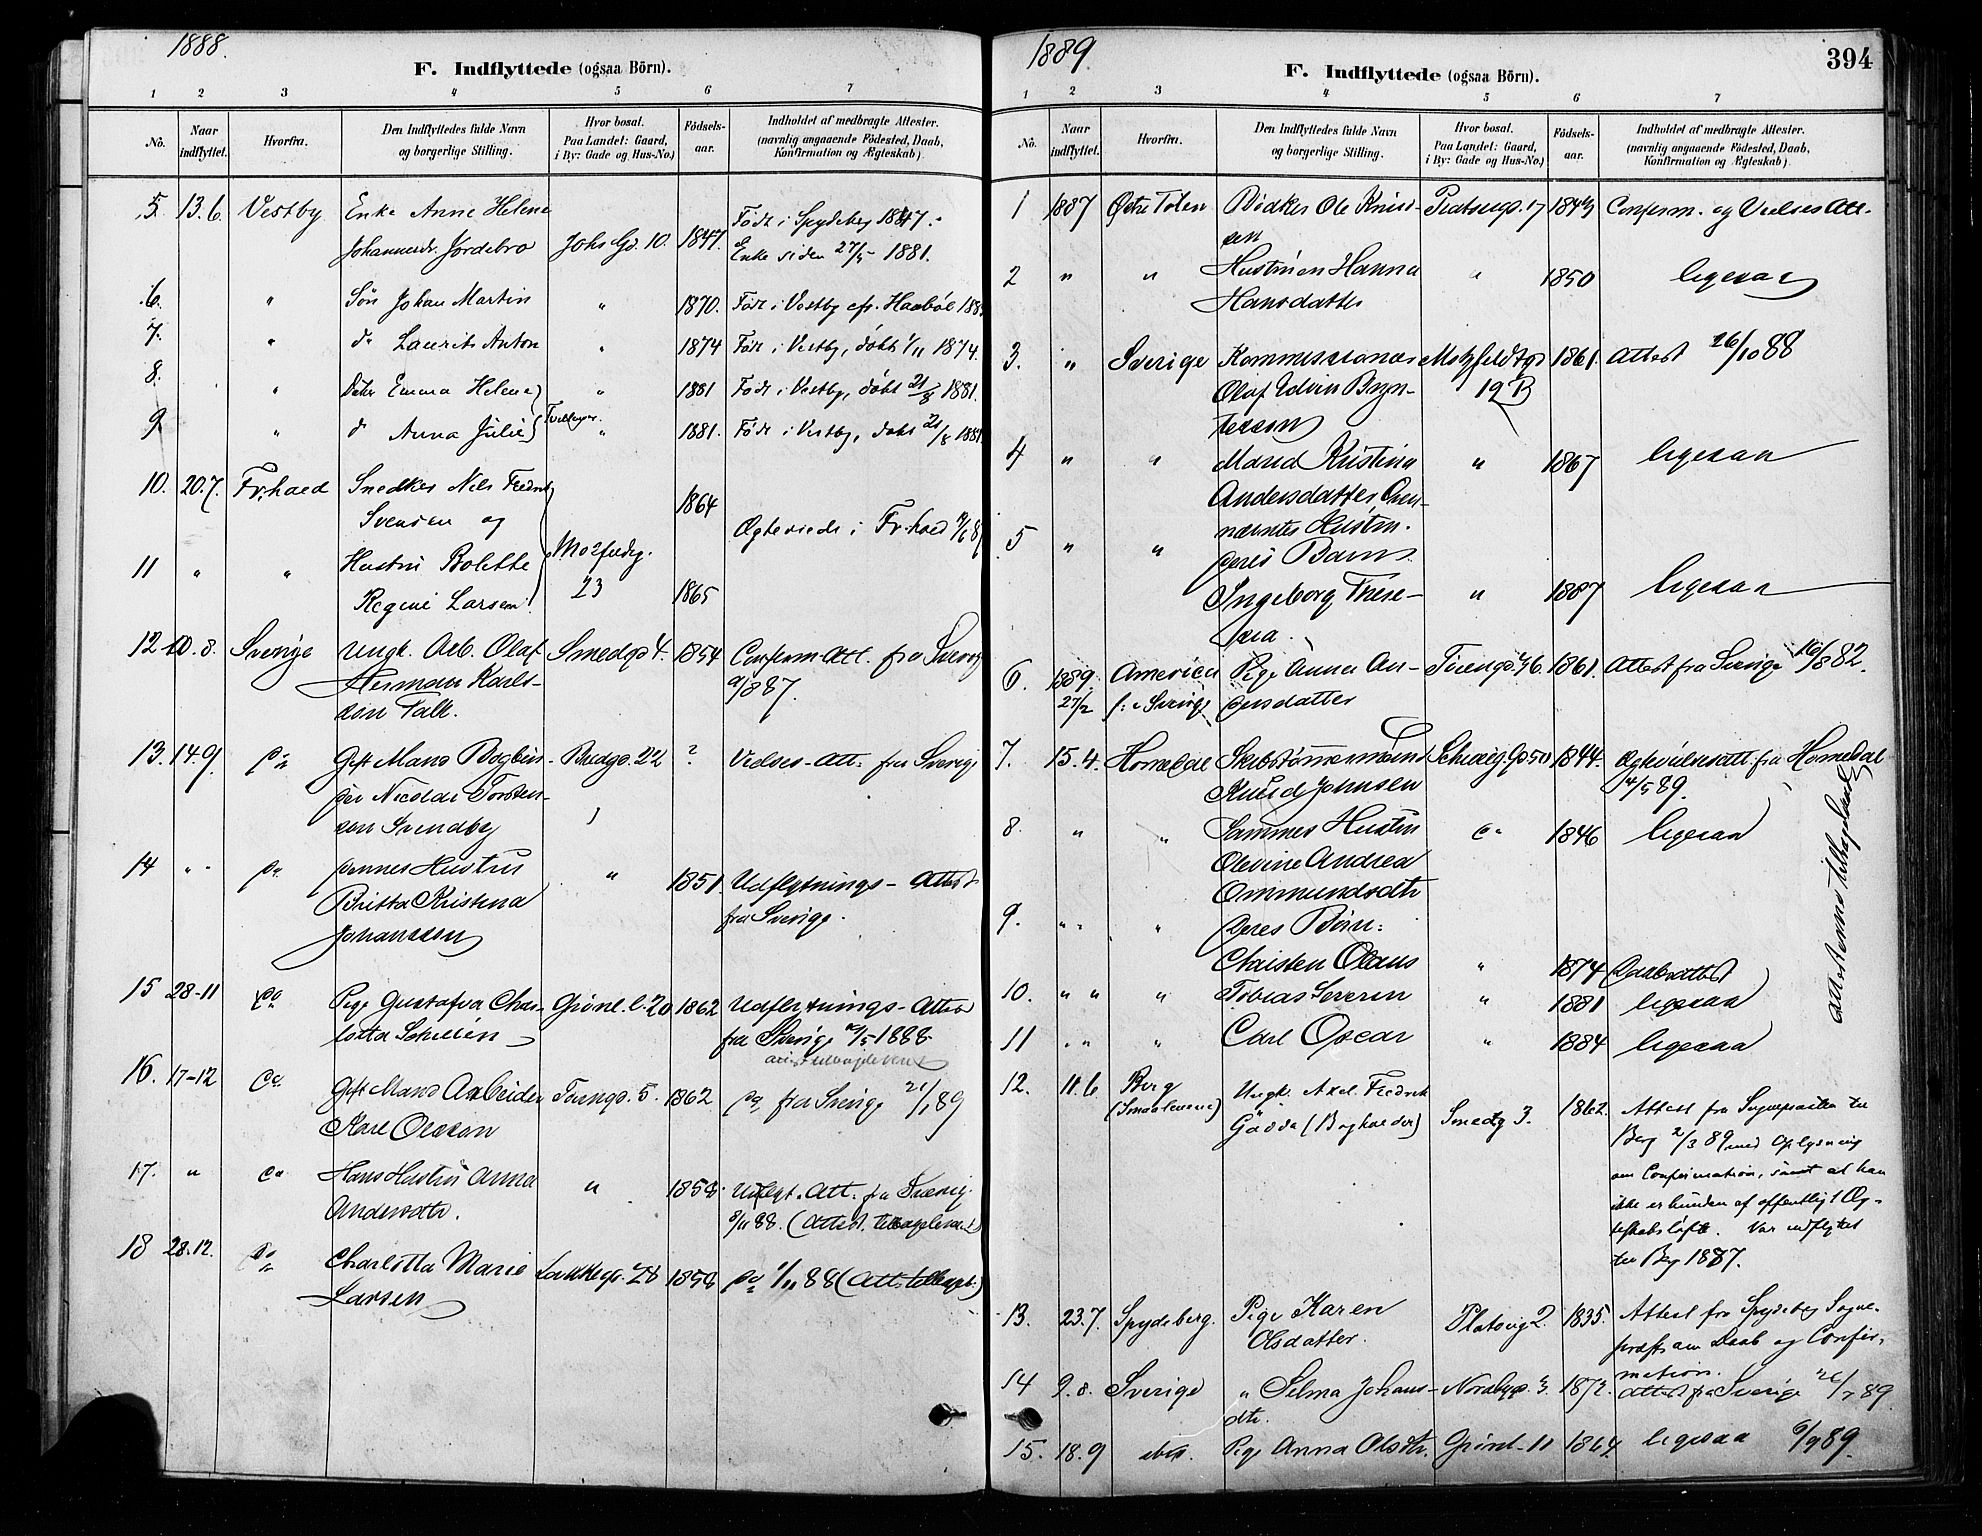 1888.
F. Indflyttede (ogsaa Börn).
1 2 3 4 5 6 7
No. Naar indflyttet. Hvorfra. Den Indflyttedes fulde Navn og borgerlige Stilling. Hvor bosat. Paa Landet: Gaard, i By: Gade og Hus-No.) Födsels-aar. Indholdet af medbragte Attester. (navnlig angaaende Födested, Daab, Konfirmation og Ægteskab).
5. 13.6. Vestby Enke Anne Helene Födt i Spydeberg 1847.
Johannesdr. Jordebro Johs Gd. 10. 1847. Enke siden 27/5 1881.
6. " Sön Johan Martin " 1870. Födt i Vestby
7. " do Laurits Anton " 1874 Födt i Vestby, döbt 1/11 1874.
8. Dtter Emma Helene 1881 Födt i Vestby, döbt 21/8 1881.
9 " d Anna Julie Tvillinger " 1881. Födt i Vestby, döbt 21/8 1881
10. 20.7. Fr.hald Snedker Nils Fredrik 1864
Svensen og Ægteviede i Fr.hald
11 " " Hustru Bolette 23
Regine Larsen. 1865
12 10.8. Sverige Ungk. Arb. Olaf Smedgd 4. 1854 Conferm-Att. fra Sverig
Herman Karls- 9/887.
son Falk.
13. 14.9. do Gift Mand Bogbin- Bredgd. 22 ? Vielses-Att. fra Sverig
der Nicolai Torsten-
son Svendby
14 " " do dennes Hustru " 1851. Udflytnings-Attest
Britta Kristina fra Sverige.
Johanssen
15 28-11 do Pige Gustafva Char- Grönl. l. 20 1862 Udflytnings-Attest
lotta fra Sverige 1888
16. 17-12 do Gift Mand Arbeider 5. 1862 do fra Sverige 21/1 89
Karl Olsson
17. " do Hans Hustru Anna " 1858. Udflyt. Att. fra Sverig.
Andersdtr. 8/11 88. (Attest. tilbagelevert)
18 28.12. do Charlotta Marie Lakkegd. 28 1858 do 1/11 88
Larsen
1889
F. Indflyttede (ogsaa Börn).
394
1 2 3 4 5 6 7
No. Naar indflyttet. Hvorfra. Den Indflyttedes fulde Navn og borgerlige Stilling. Hvor bosat. Paa Landet: Gaard, i By: Gade og Hus-No.) Födsels-aar. Indholdet af medbragte Attester. (navnlig angaaende Födested, Daab, Konfirmation og Ægteskab).
1 1887 Östre Toten Bödker Ole Knud- 17 1843 Conferm. og Vielses Att.
sen
2 " " Hustruen Hanna " 1850 ligesaa
Hansdatter
3. " Sverige Kommissionær Motzfeldtgd 1861. Attest 26/10 88
Olaf Edvin 19 B
4 " " Maria Kristina " 1867 ligesaa
Andersdatter, Oven-
nævntes Hustru.
5 " " Deres Barn
Ingeborg There- " 1887 ligesaa
sia.
6. 1889. America Pige Anna An- 46. 1861. Attest fra Sverige 16/8 82.
27/2 f. i Sverige dersdatter
7. 15.4. Homedal Skibstömmermand Schweig. Gd 50 1844. fra Homedal
Knud Johnsen 14/5 89.
8. " " Sammes Hustru do 1846 ligesaa
Olevine Andrea
Ommundsdtr
9. " " " Deres Börn:
Christen Olaus " 1874 Daabsattest
10. " " " Tobias Severin " 1881 ligesaa
11 " " " Carl Oscar " 1884 ligesaa
12. 11.6 Berg Ungk. Axel Fredrik
(Smaalenene) Gädda Smedg 3. 1862. Attest fra Sognepresten til
Berg 2/3 89 med Oplysning
om Confirmation, samt at han
ikke er bunden af offentligt Æg-
teskabslöfte. Var indflyttet
til Berg 1887.
13. 23.7. Spydeberg. Pige Karen Platousg 2. 1835. Attest fra Spydeberg Sogne-
Olsdatter. præst om Daab og Confir-
mation.
14 9.8. Sverige " Selma Johans- Norbygd. 1872. Attest fra Sverige 89
dtr.
15. 18.9 Pige Anna Olsdtr. Grönl. 11 1864 ligesaa 6/9 89.